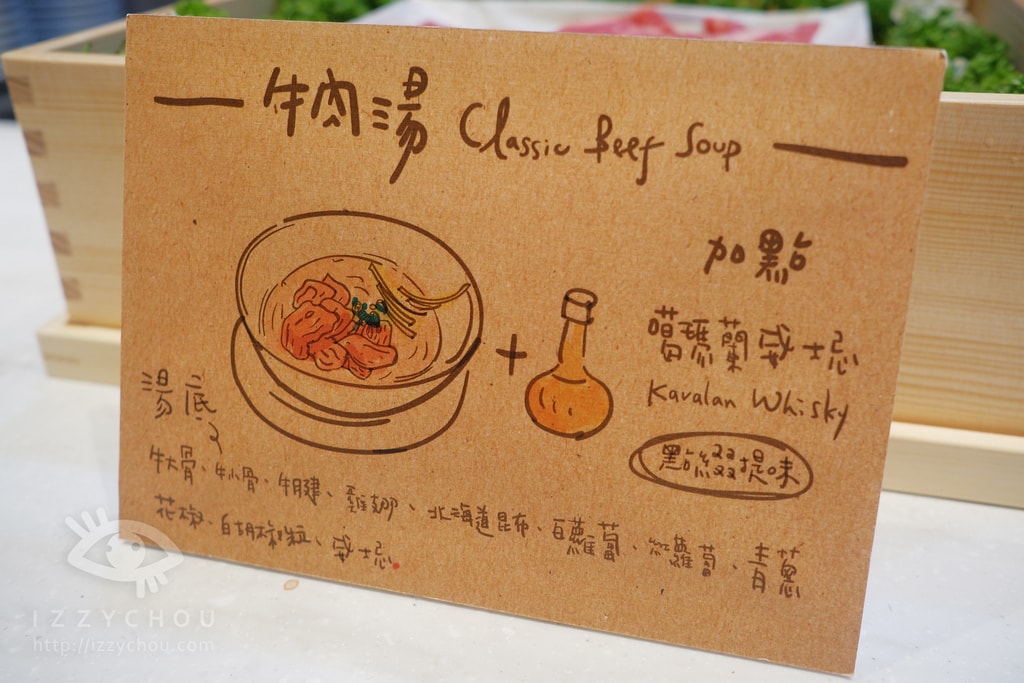 牛肉湯 Classic Beef Soup
加點
葛瑪蘭威士忌
Kavalan Whisky
點綴提味
+
湯底
牛大骨、牛小骨、牛腱、雞腳、北海道昆布、白蘿蔔、紅蘿蔔、青蔥
花椒、白胡椒粒、威士忌
IZZYCHOU
http://izzychou.com